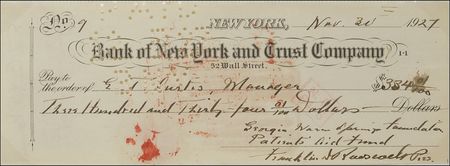 No 9 NEW YORK, Nov. 30 1927
Bank of New York and Trust Company 1-1
52 Wall Street.
Pay to
the order of E. T. Curtis, Manager $334 51/100
Three Hundred and Thirty four 51/100 Dollars Dollars
Georgia Warm Springs Foundation
Patients Aid Fund
Franklin D Roosevelt Pres.